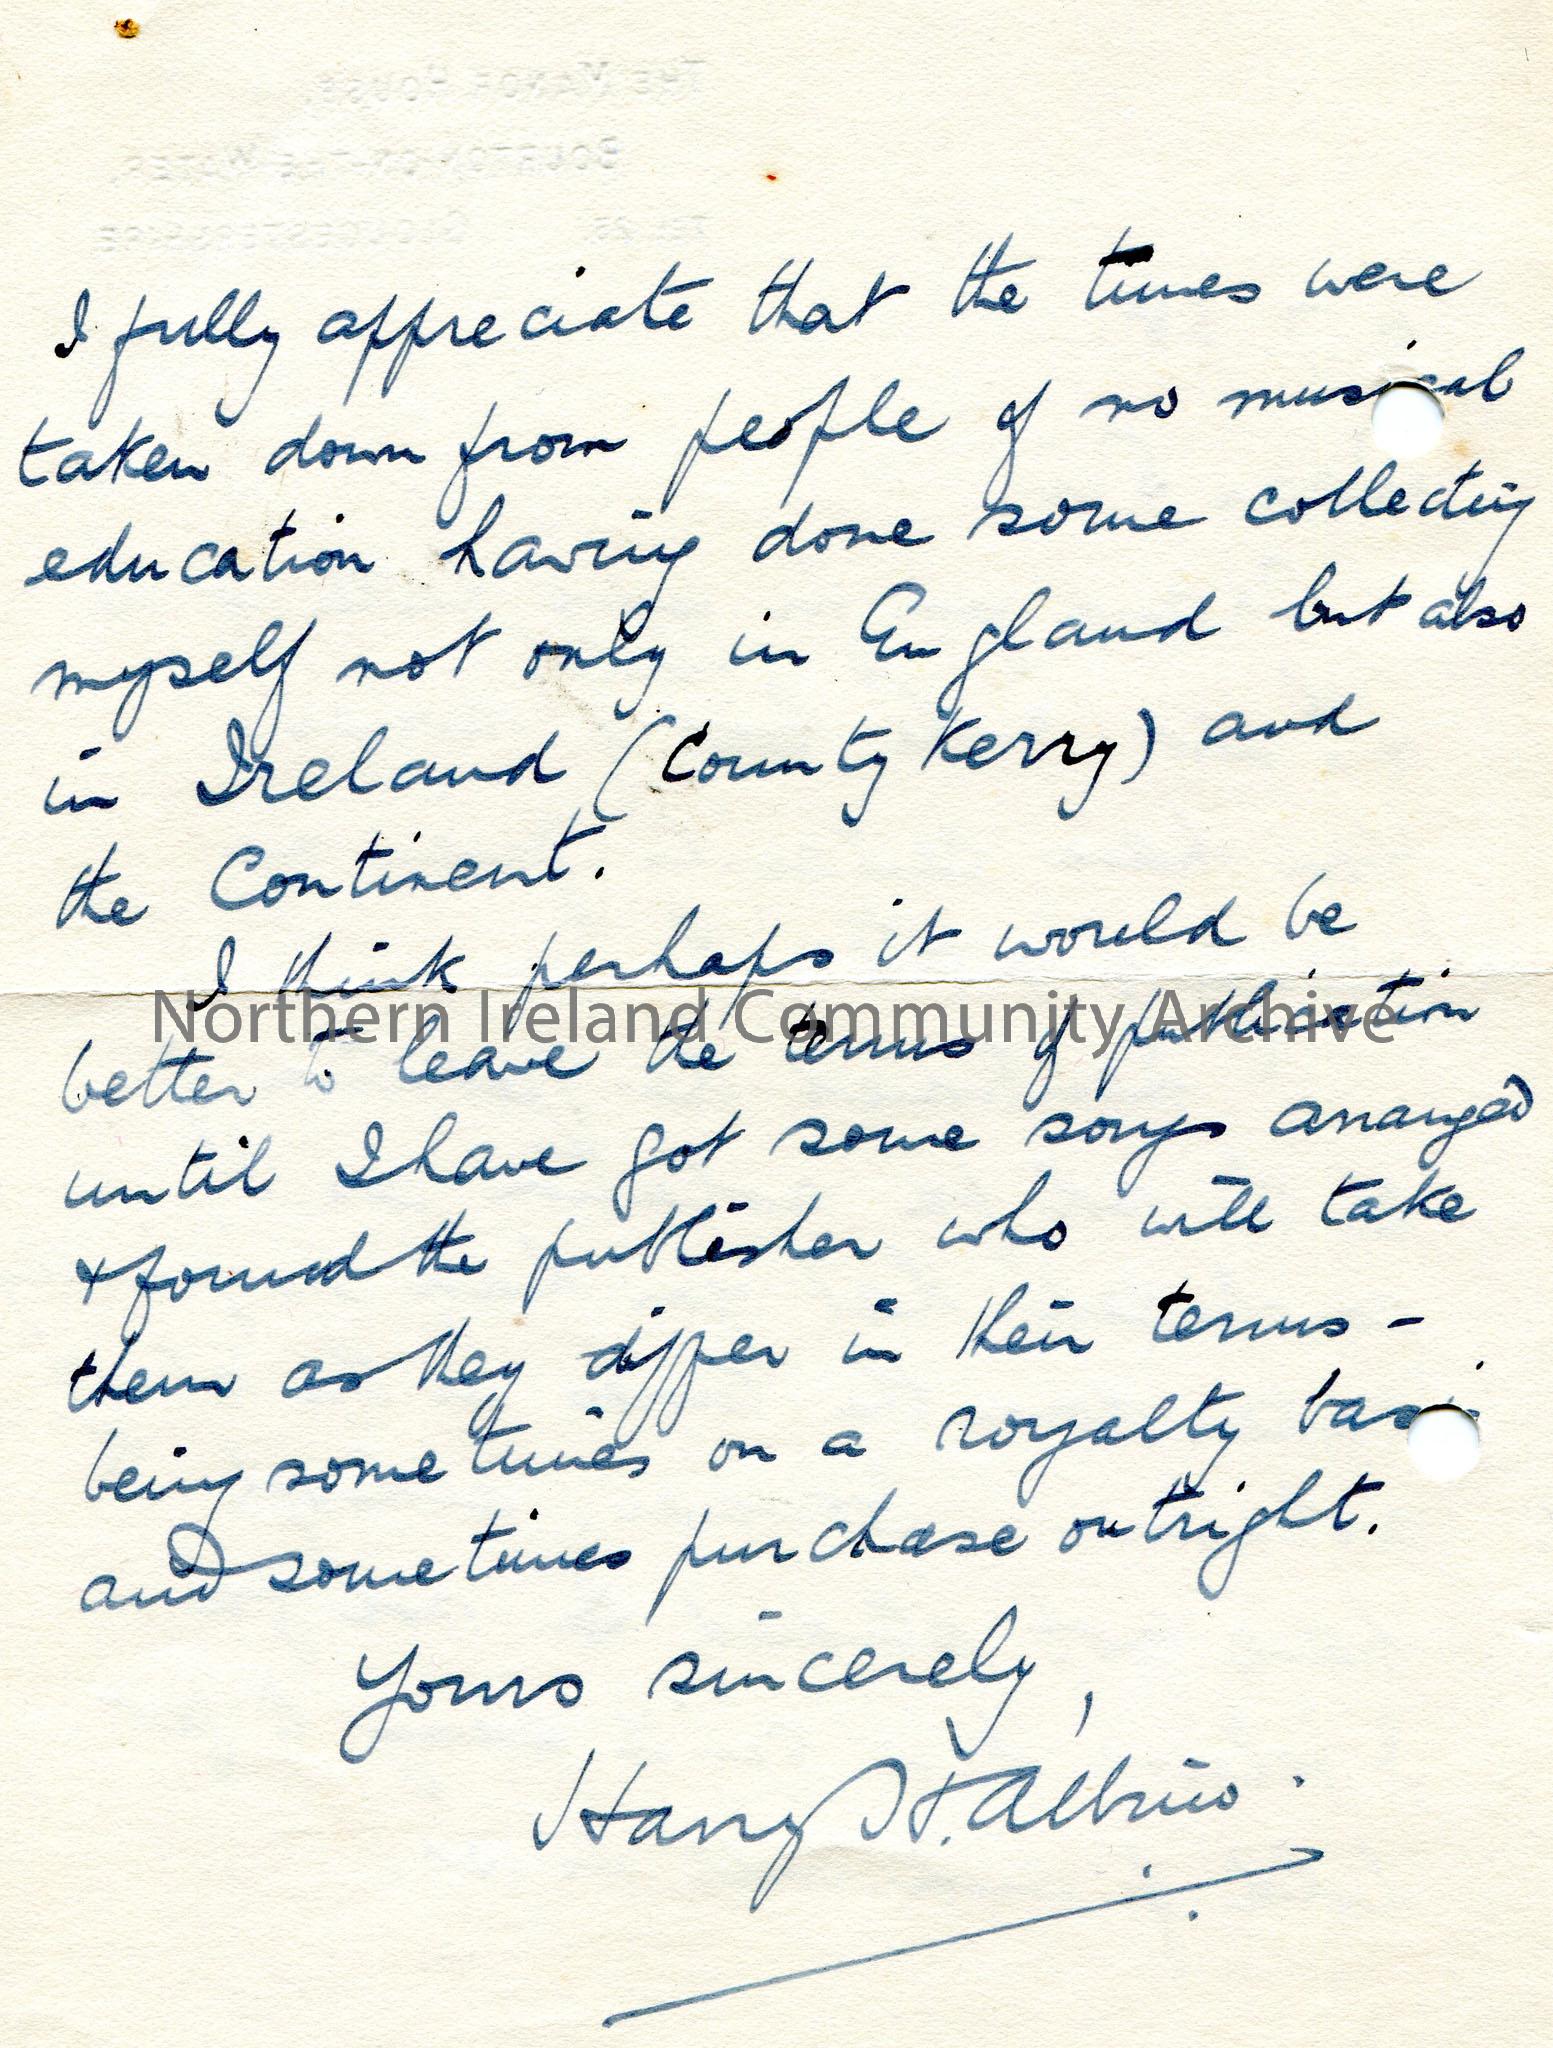 THE MANOR HOUSE,
BOURTON-ON-THE-WATER,
GLOUCESTERSHIRE
I fully appreciate that the tunes were
taken down from people of no musical
education having done some collecting
myself not only in England but also
in Ireland (County Kerry) and
the Continent.
I think perhaps it would be
Northern Ireland Community Archive
better to leave the terms of publication
until I have got some songs arranged
& found the publisher who will take
them as they differ in their terms -
being sometimes on a royalty basis
and sometimes purchase outright.
Yours sincerely,
Harry H. Albino.